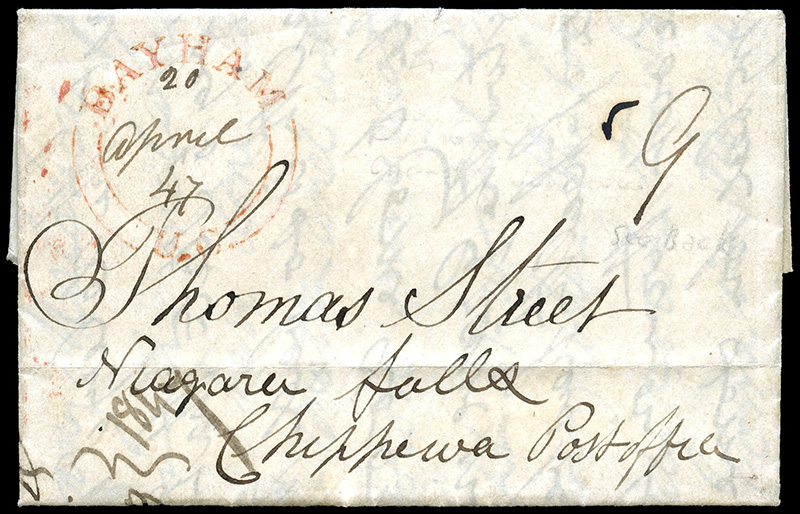 BAYHAM
20
april
47
U.C
9
See Back
Thomas Street
Niagara falls
Chippewa Postoffice